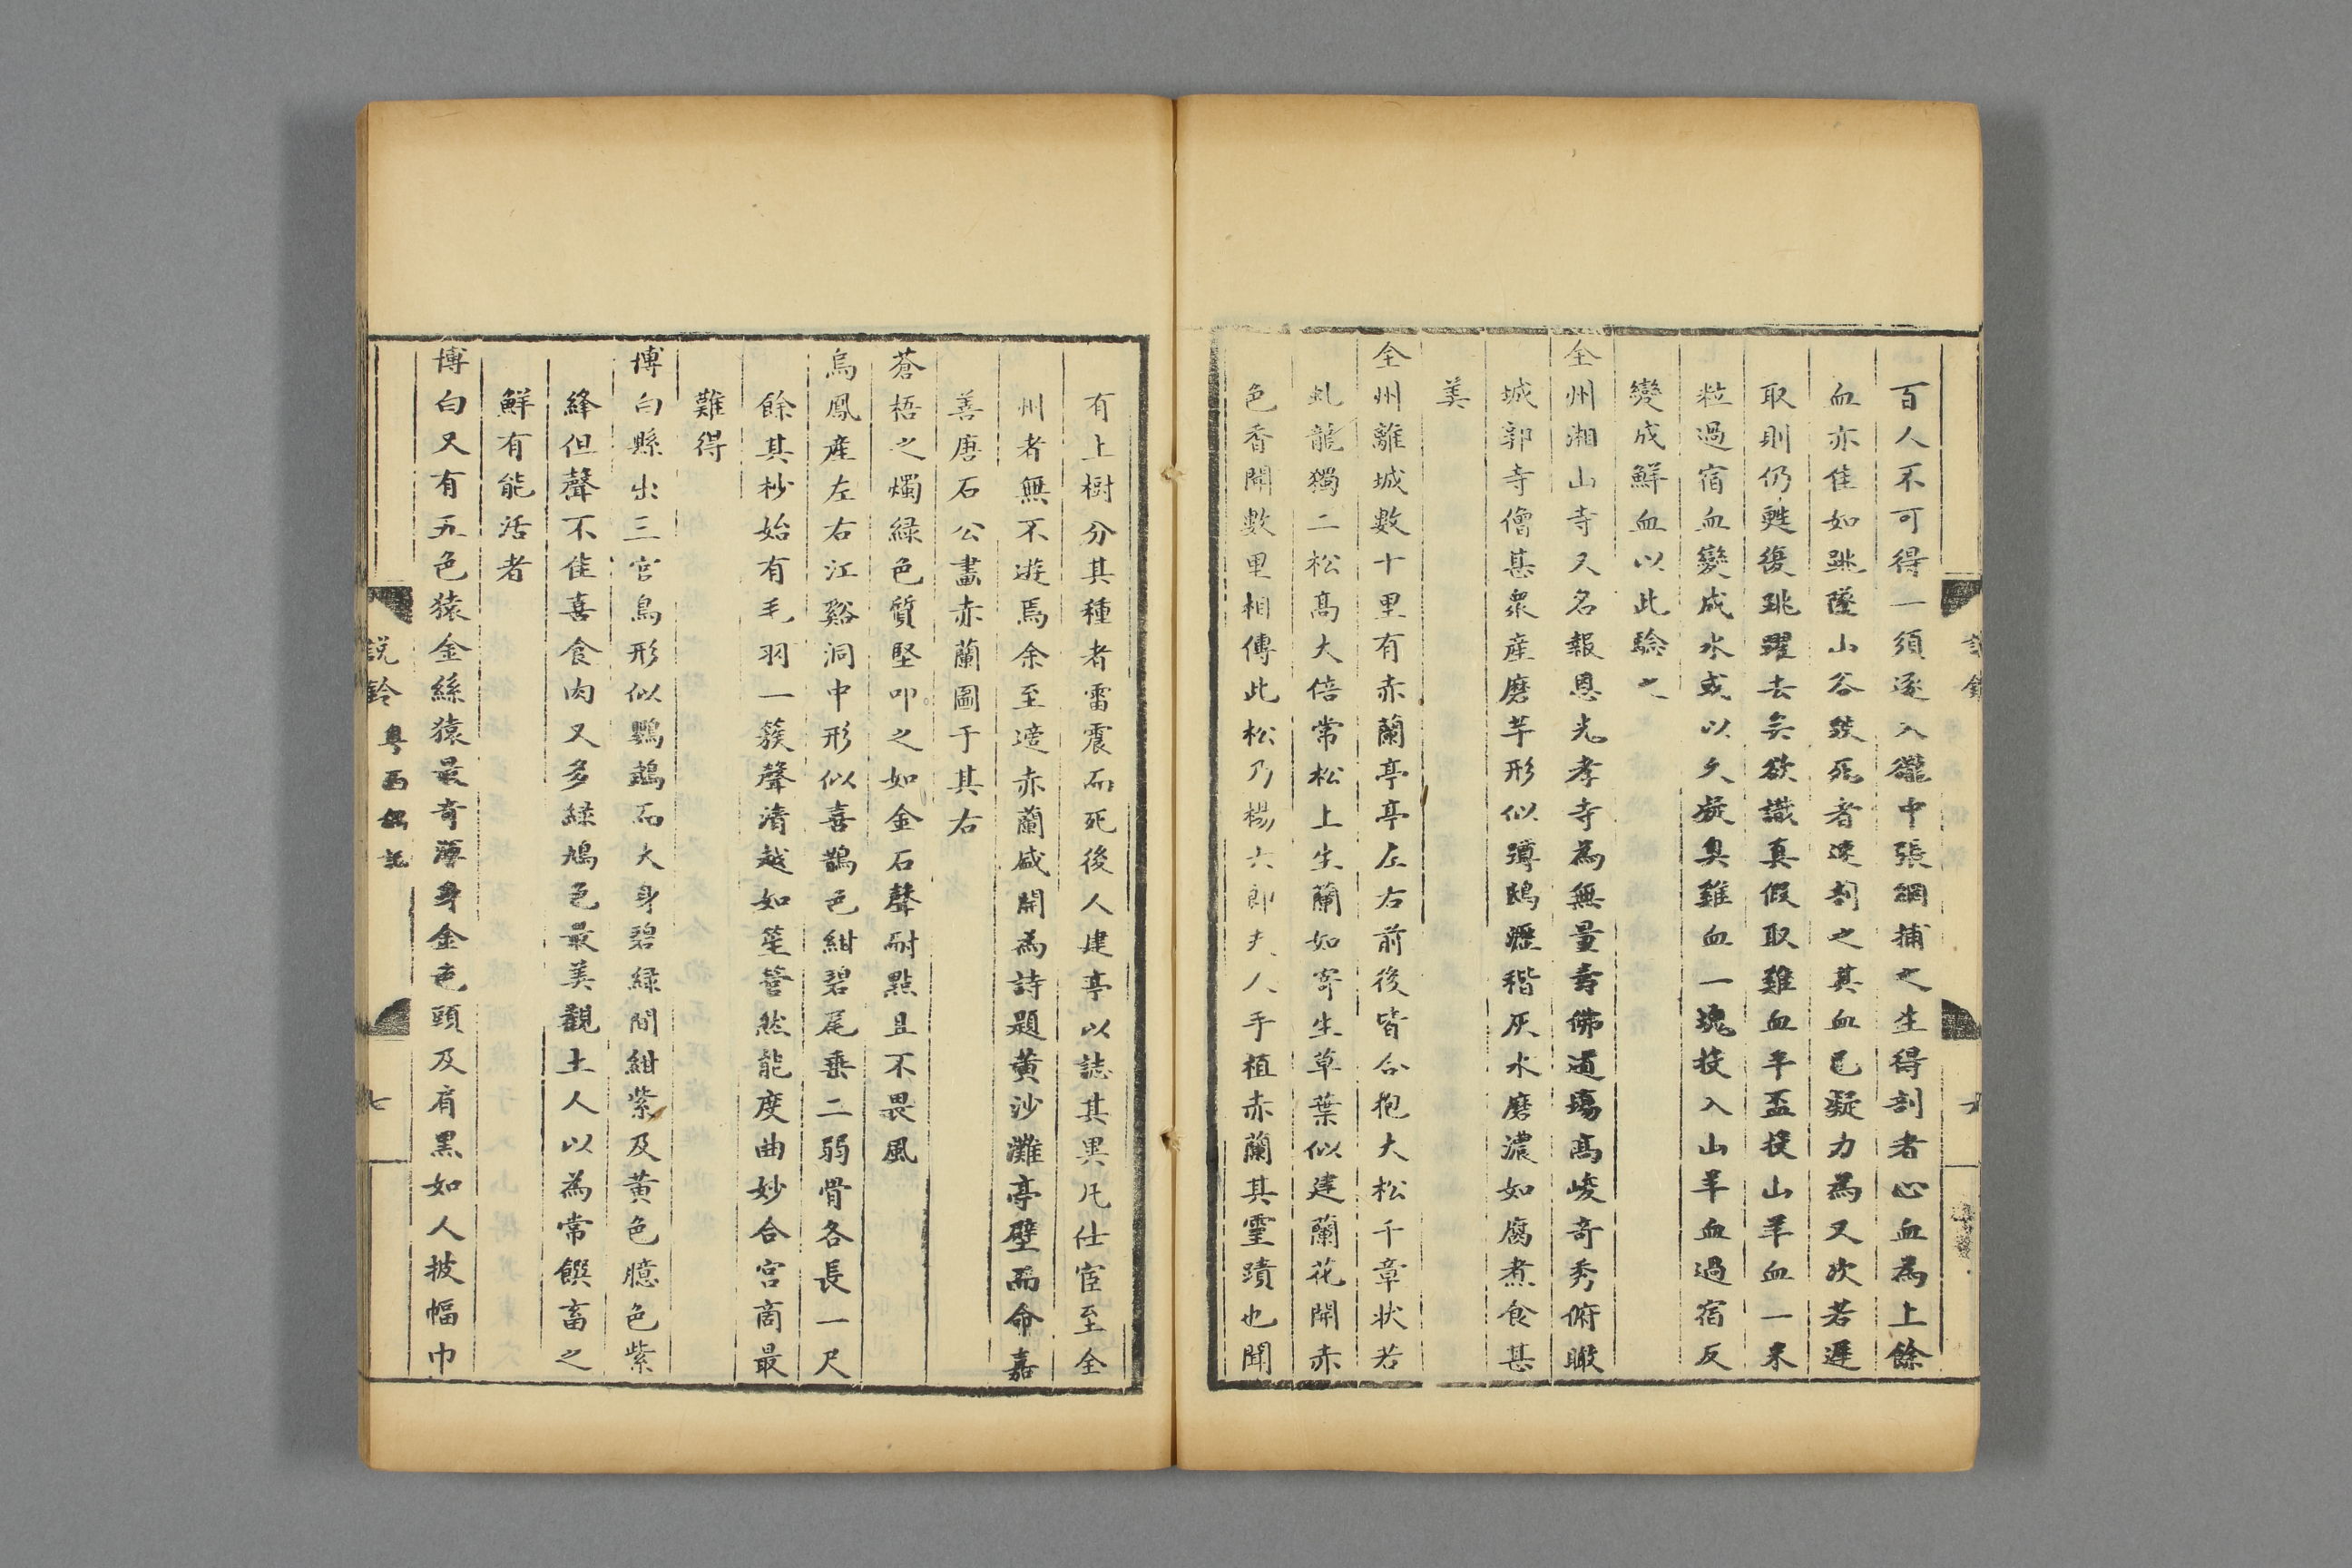 百人不可得一須逐入巃中張網捕之生得剖者心血為上餘
血亦佳如跳墮山谷跌死者速剖之其血已凝力為又次若遲
取則仍甦復跳躍去矣欲識真假取雞血半盃投山羊血一米
粒過宿血變成水或以久凝臭雞血一塊投入山羊血過宿反
變成鮮血以此驗之
全州湘山寺又名報恩光孝寺寺為無量壽佛道塲高峻奇秀俯瞰
城郭寺僧甚衆産磨芋形似蹲鴟瀝稭灰水磨濃如腐煮食甚
美
全州離城數十里有赤蘭亭亭左右前後皆合抱大松千章状若
虬龍獨二松高大倍常松上生蘭如寄生草葉似建蘭花開赤
色香聞數里相傳此松乃楊六郎夫人手植赤蘭其靈蹟也聞
有上樹分其種者雷震而死後人建亭以誌其異凡仕宦至全
州者無不遊焉余至適赤蘭盛開為詩題黄沙灘亭壁而命嘉
善唐石公畵赤蘭圖于其右
蒼梧之燭緑色質堅叩之如金石聲耐點且不畏風
烏鳳産左右江谿洞中形似喜鵲色紺碧尾垂二弱骨各長一尺
餘其杪始有毛羽一簇聲清越如笙簧然能度曲妙合宫商最
難得
博白縣出三宫鳥形似鸚鵡而大身碧緑間紺紫及黄色臆色紫
絳但聲不佳喜食肉又多緑鳩色最美觀土人以為常饌畜之
鮮有能活者
博白又有五色猿金絲猿最奇渾身金色頭及肩黒如人披幅巾
説鈴 粤西偶記
七